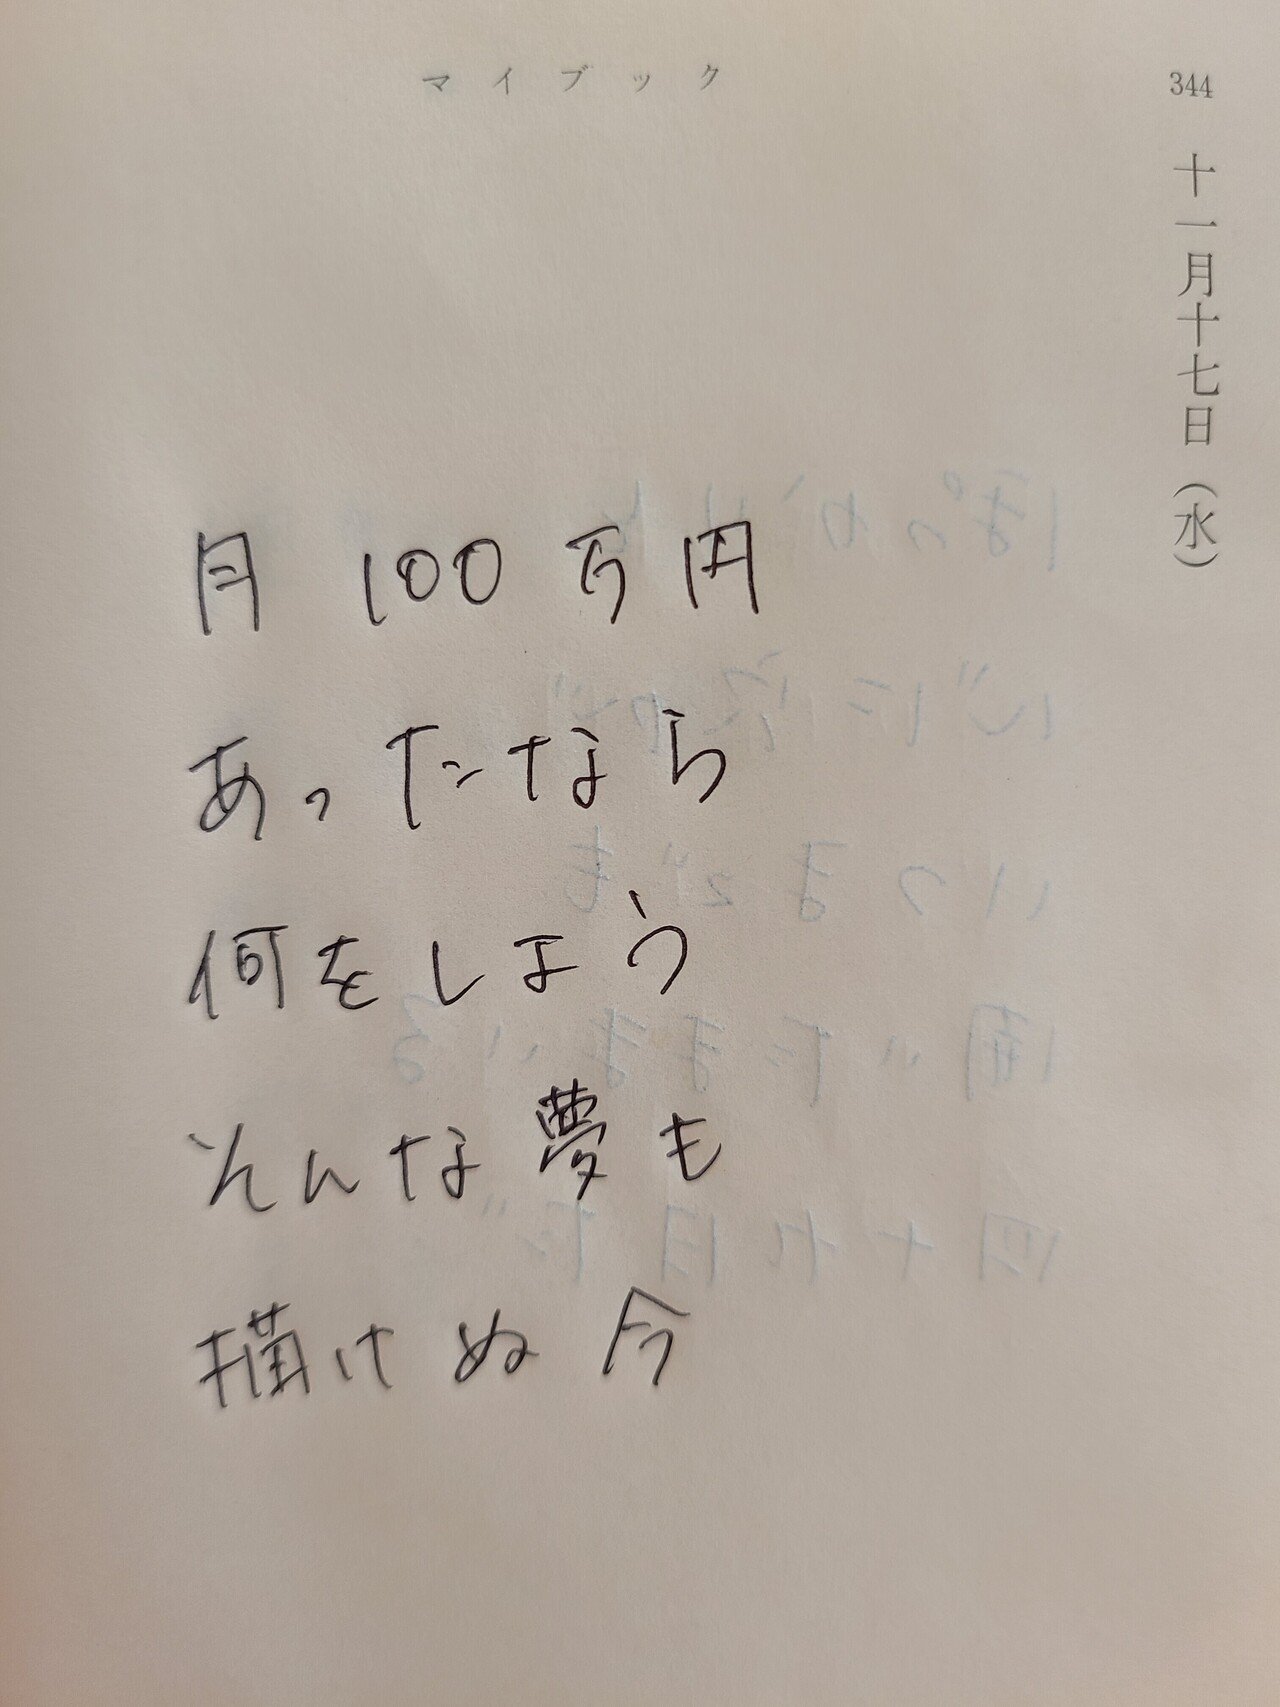 マイブック
344
十一月十七日（水）
月100万円
あったなら
何をしよう
そんな夢も
描けぬ今